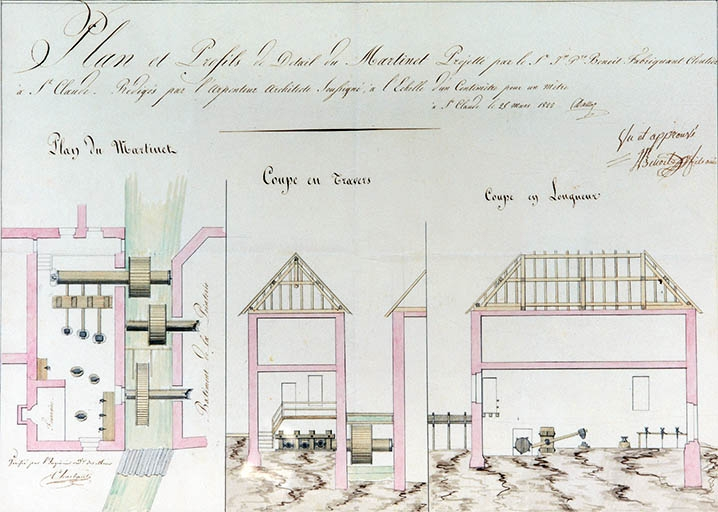 Plan et Profils de Détail du Martinet Projetté par le Sr. Benoit Fabriquant Cloutier
à St. Claude. Rédigés par l'Arpenteur Architecte Soussigné, à l'Echelle d'un Centimètre pour un mètre
à St Claude le 26 mars
Vu et approuvé
Benoit
Plan du Martinet
Coupe en Travers
Coupe en Longueur
Bâtiment de la